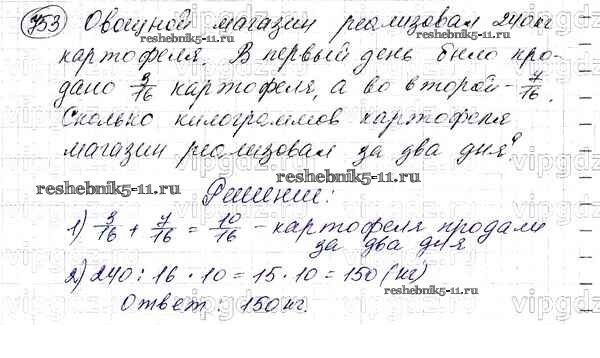 753 Овощной магазин реализовал 240 кг
картофеля. В первый день было про-
дано 3/16 картофеля, а во второй - 7/16.
Сколько килограммов картофеля
магазин реализовал за два дня?
reshebnik5-11.ru
reshebnik5-11.ru
Решение:
1) 3/16 + 7/16 = 10/16 - картофеля продали
за два дня
2) 240 : 16 · 10 = 15 · 10 = 150 (кг)
reshebnik5-11.ru
Ответ: 150 кг.